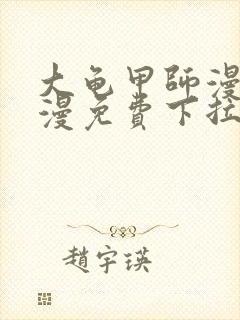 大龟甲師漫
漫免費下拉
趙宇瑛